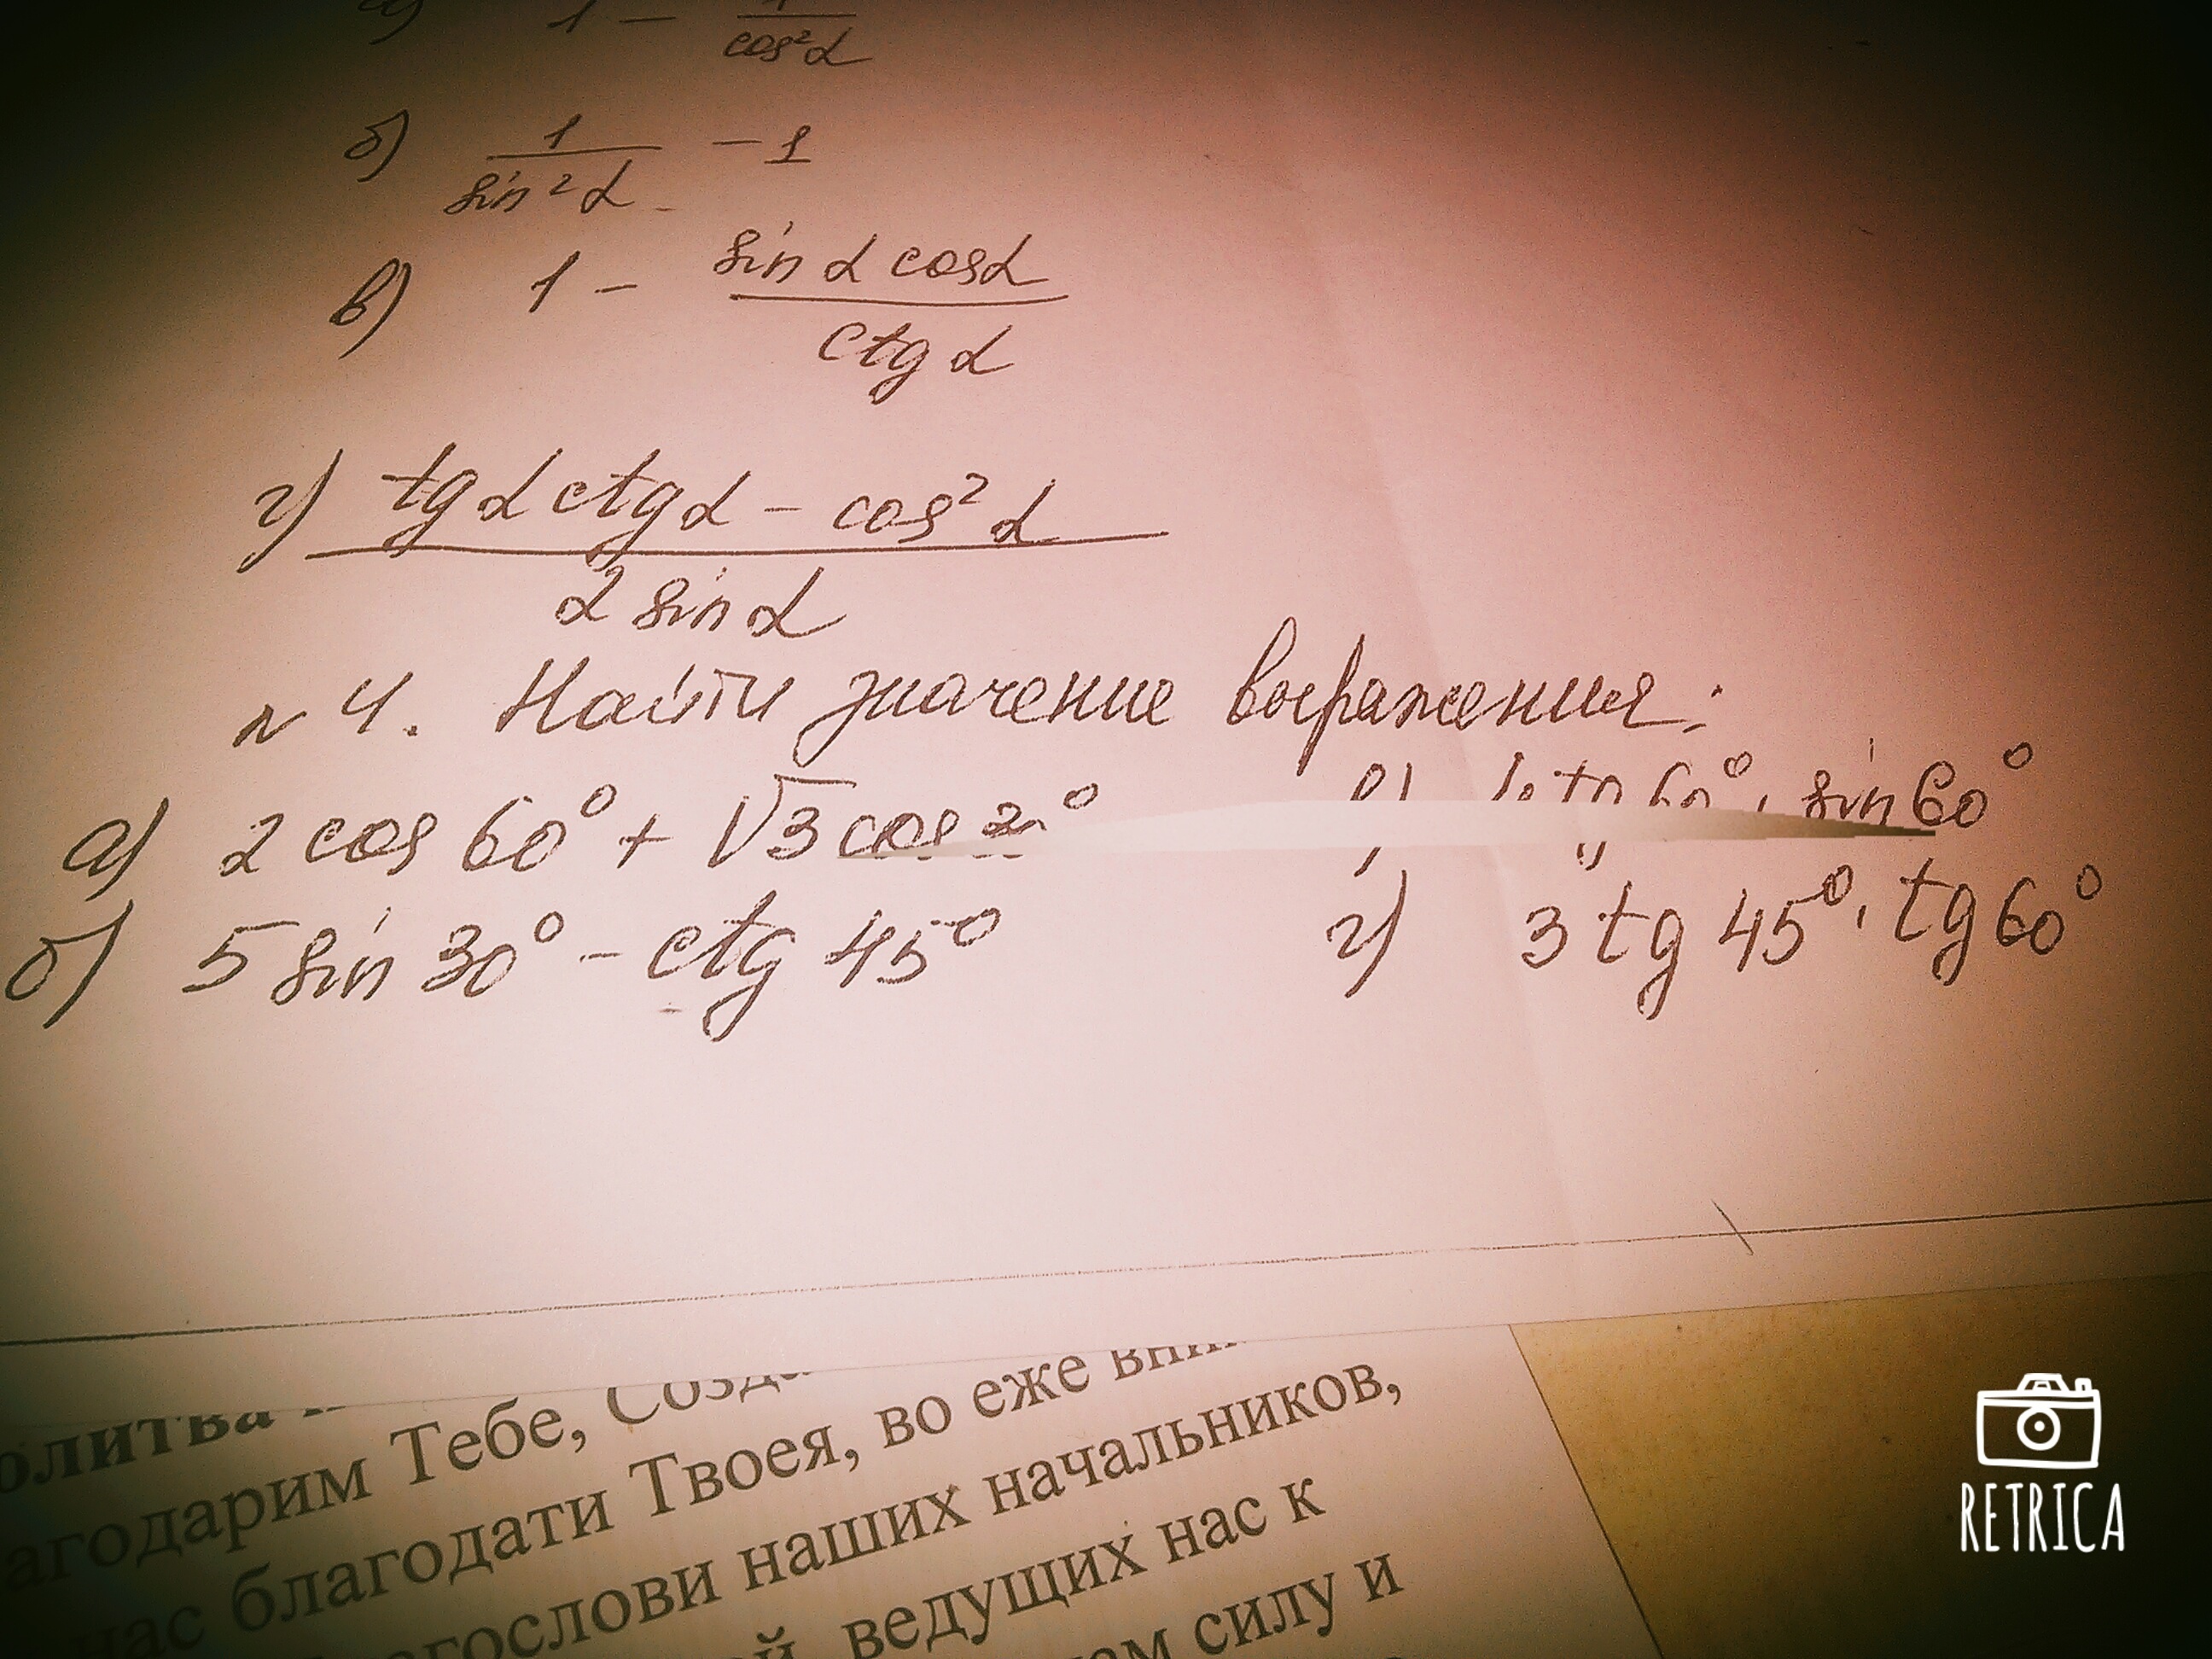 1 - 1/cos²α
б) 1/sin²α - 1
в) 1 - sin α cos α / ctg α
г) tg α ctg α - cos² α / 2 sin α
№ 4. Найти значение выражения:
а) 2 cos 60° + √3 cos ° tg 60° · sin 60°
б) 5 sin 30° - ctg 45° г) 3 tg 45° · tg 60°
Тебе,
благодати Твоея, во еже
наших начальников,
ведущих нас к
силу и
RETRICA